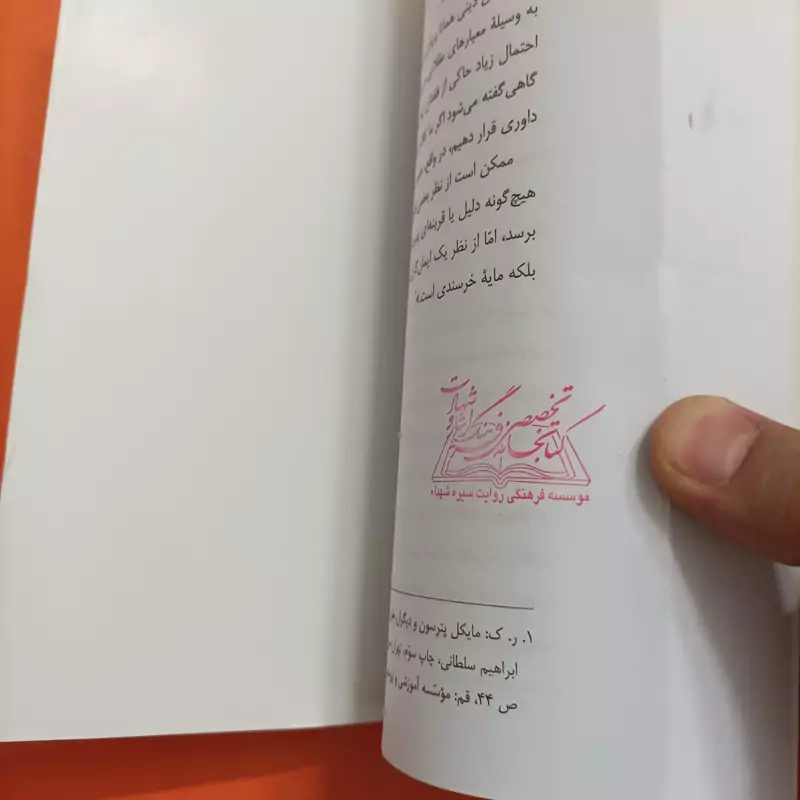 دینی
به وسیلهٔ معیارهای عقلانی
احتمال زیاد حاکی از فقدان
گاهی گفته می‌شود اگر ما
داوری قرار دهیم، در واقع
ممکن است از نظر بعضی
هیچ‌گونه دلیل یا قرینه‌ای
برسد، امّا از نظر یک ایمان‌گرا
بلکه مایهٔ خرسندی است.»۱
کتابخانه تخصصی
فرهنگ ایثار و شهادت
موسسه فرهنگی روایت سیره شهداء
۱. ر. ک: مایکل پترسون و دیگران
ابراهیم سلطانی، چاپ سوّم، تهران
ص ۴۴، قم: مؤسّسه آموزشی و